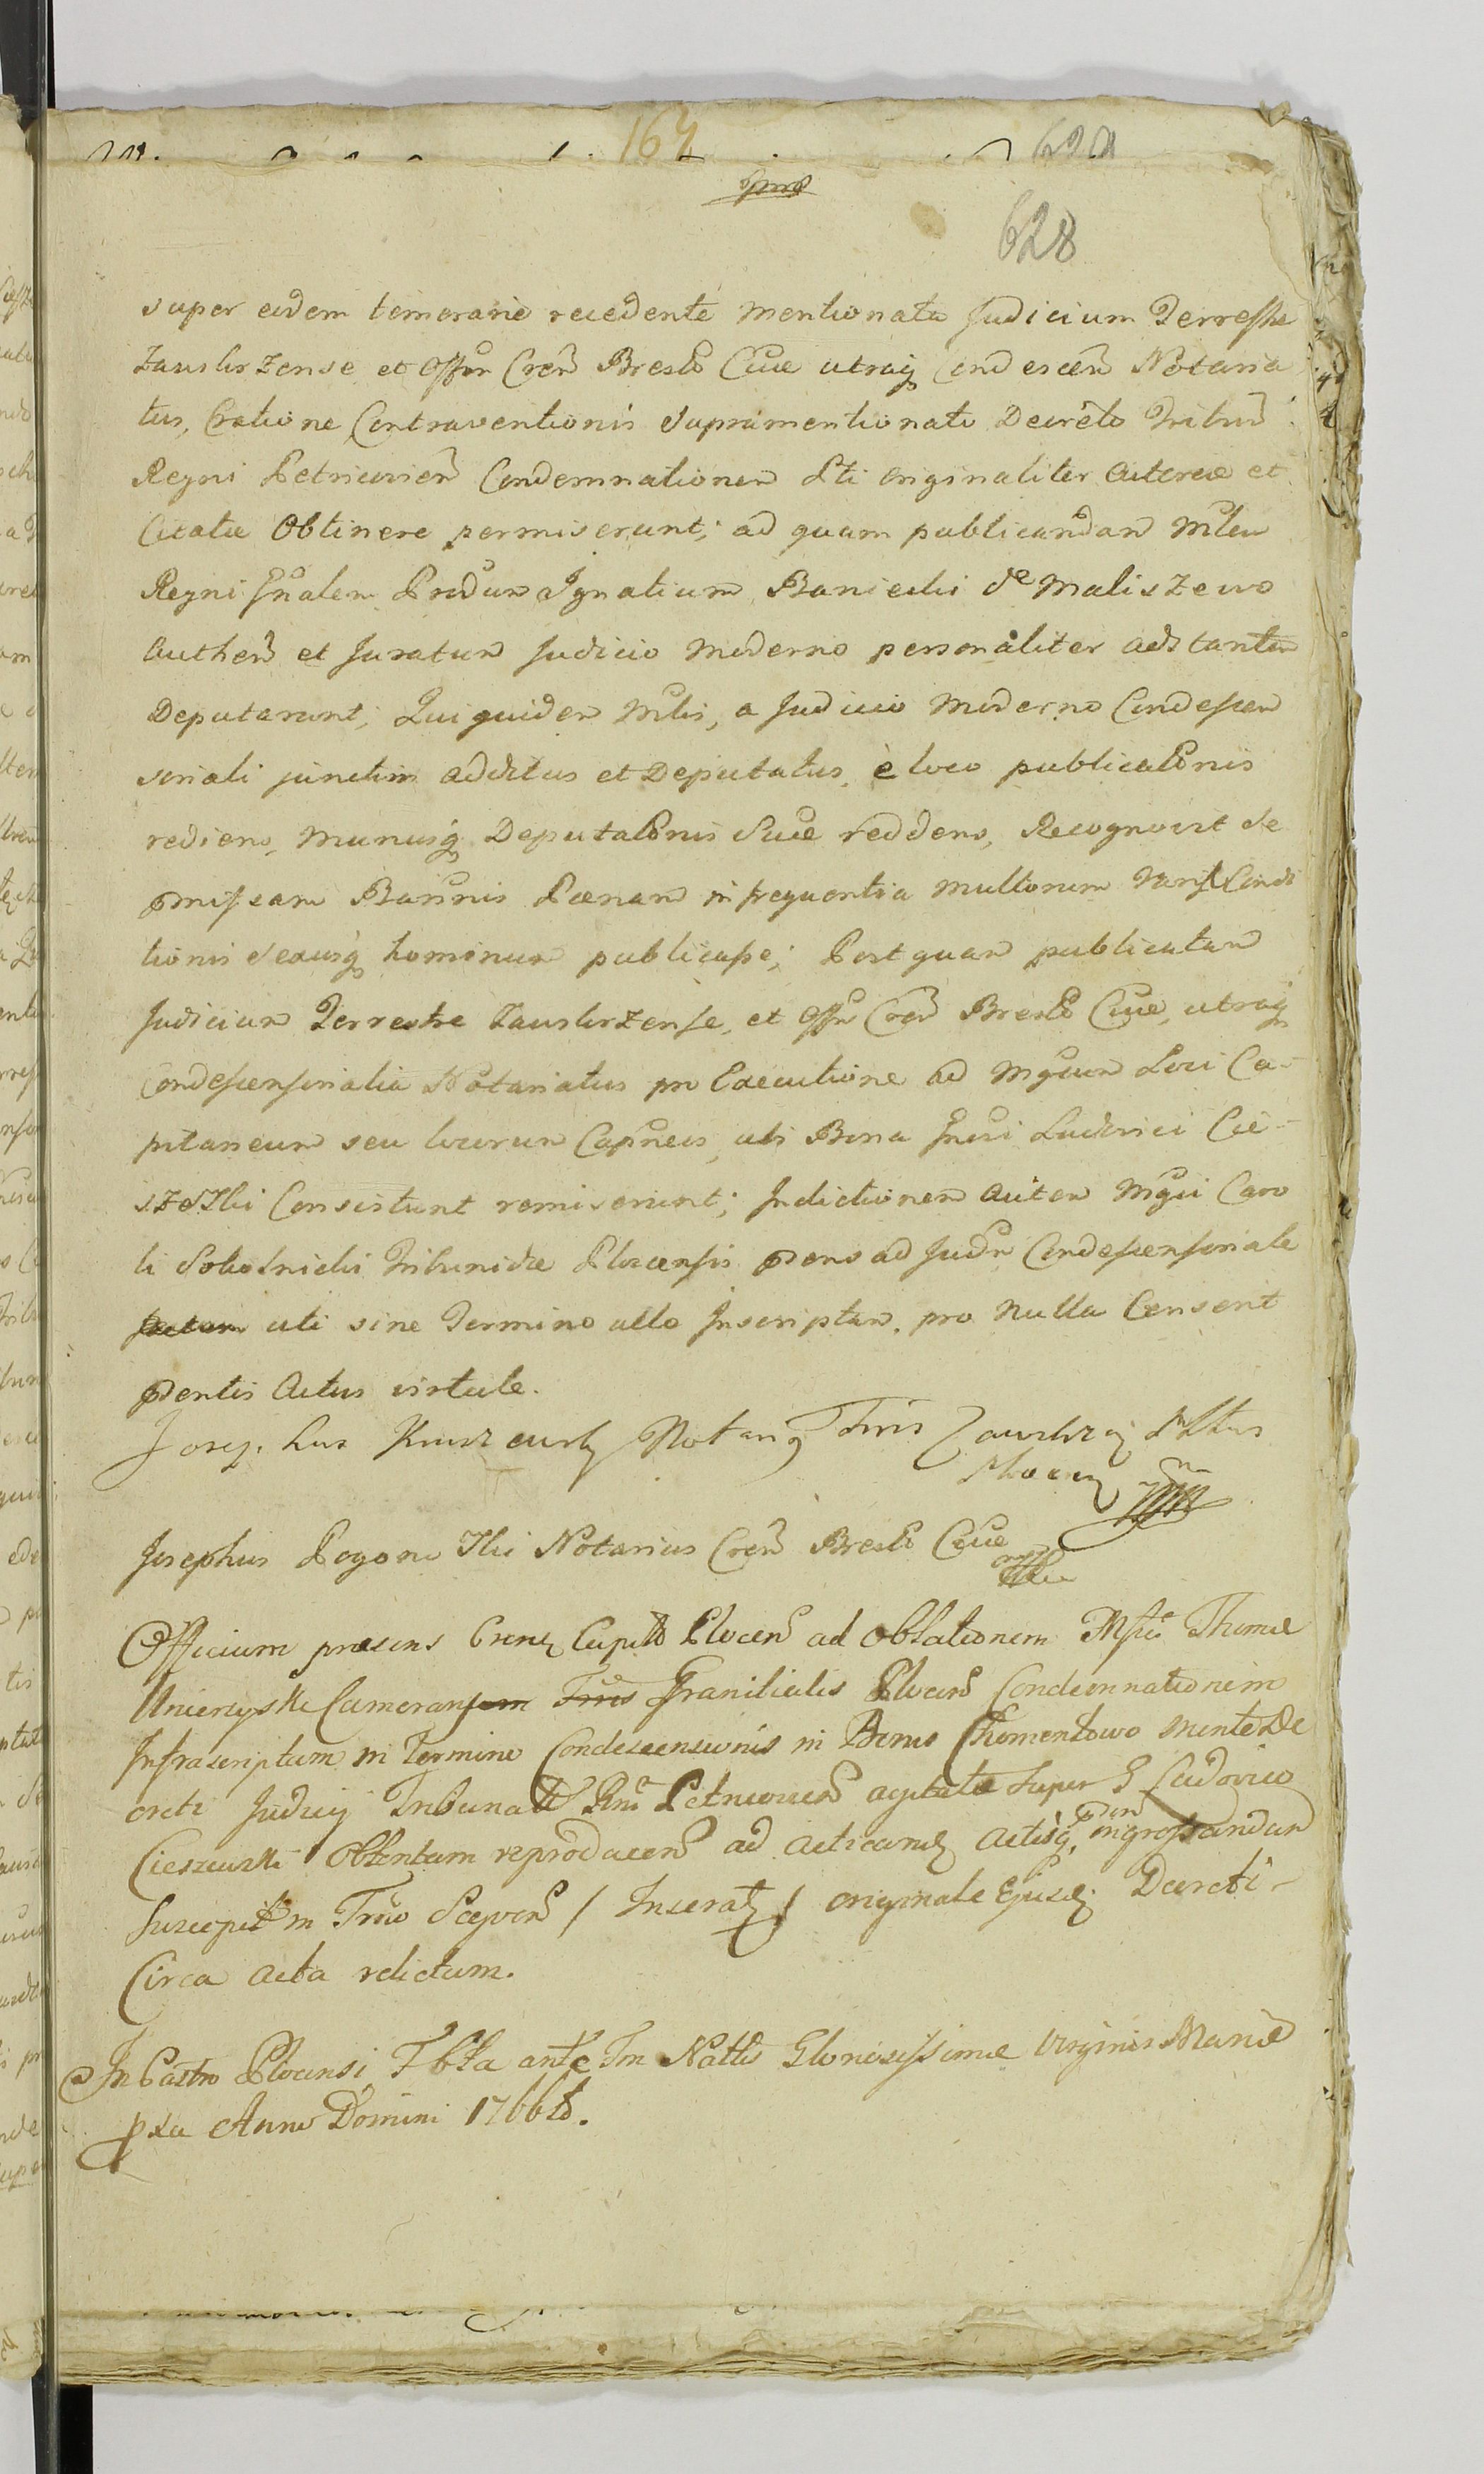 167
628
super eodem temerarie recedente mentionata Judicium Terrestre
Zauskrzense et Offm Cren Bresto Cuiae utraq Condescen Notaria
tus, Ratione Contraventionis Supramentionato Decreto Tribun
Regni Petricovien Condemnationem Pti originaliter Actoreae et
Citatae Obtinere permiserunt; ad quam publicandam Mlem
Regni Gnalem Prdum Ignatium Baniecki de Maliszewo
Authen et Juratum Judicio moderno personaliter adstantem
Deputarunt; Qui quidem Mlis, a Judicio Moderno Condescen
soriali junctim additus et Deputatus, è loco publicaonis
rediens, Munusq Deputaonis Suae reddens, Recognovit Se
pmissam Bannis Poenam in frequentia multorum Varis Condi
tionis Sexusq hominum publicasse; Post quam publicatam
Judicium Terrestre Zauskrzense, et Offm Cren Bresto Cuiae, utraq
Condescensorialia Notariatus pro Executione ad Mgcum Loci Ca-
pitaneum seu locorum Capneos, ubi Bona Gnosi Ludovici Cie-
szewski Consistunt remiserunt; Indictionem autem Mgci Caro
li Sokolnicki Tribunidae Plocensis pens ad Judm Condescensoriale
uti sine Termino ullo Inscriptam, pro Nulla Censent
pentis Actus virtute.
Notarig Trris Zawskrz
Josephus Pogorzelski Notarius Cren Bresto Cuiae
mpp
Officium praesens Crens Capitle Plocen ad Oblationem Msci Thomae
Unierzyski Granitialis Plocen Condemnationem
Infrascriptam in Termino Condescensionis in Bonis Chomentowo mente De
creti Judicij Tribunalis Rni Petricovien agitato super G Ludovico
Cieszewski Obtentam reproducen ad acticand Actisq eadem ingrossandam
Suscepit in Trno Seqven / Inseratz / originale Ejusd Decreti
Circa acta relictum.
In Castro Plocensi Fbta ante Fm Nattis Gloriosissimae Virginis Mariae
pxa Anno Domini 1766to.